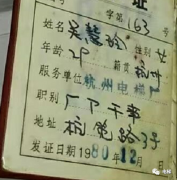 字第163号
姓名 吴慧玲 性别 女
年龄 28 籍贯 杭州
服务单位 杭州电梯厂
职别 厂下干部
地址 杭 路3号
发证日期1980年12月 日